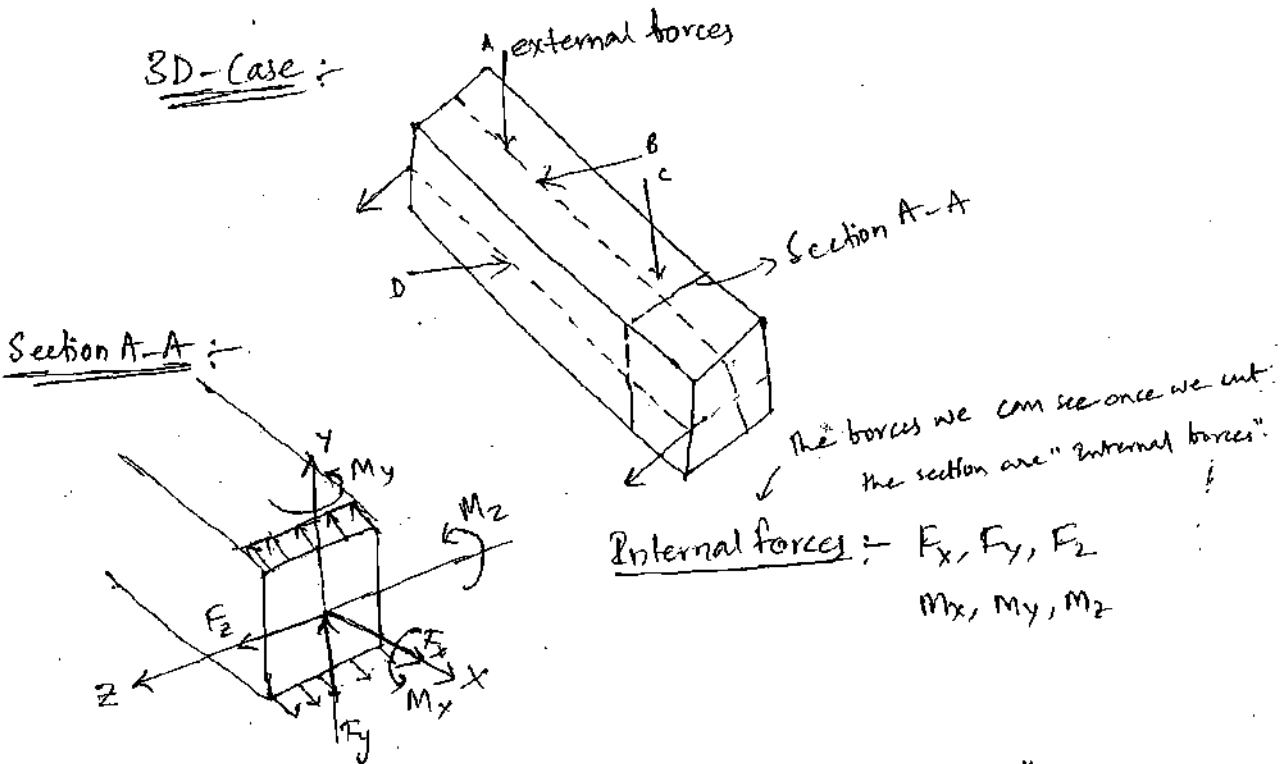 3D-Case :-
A external forces
B
C
Section A-A
D
Section A-A :-
Y
My
Mz
the forces we can see once we cut
the section are "Internal forces".
Internal forces :- Fx, Fy, Fz
Mx, My, Mz
Fz
Fx
Z
X
Mx
Fy